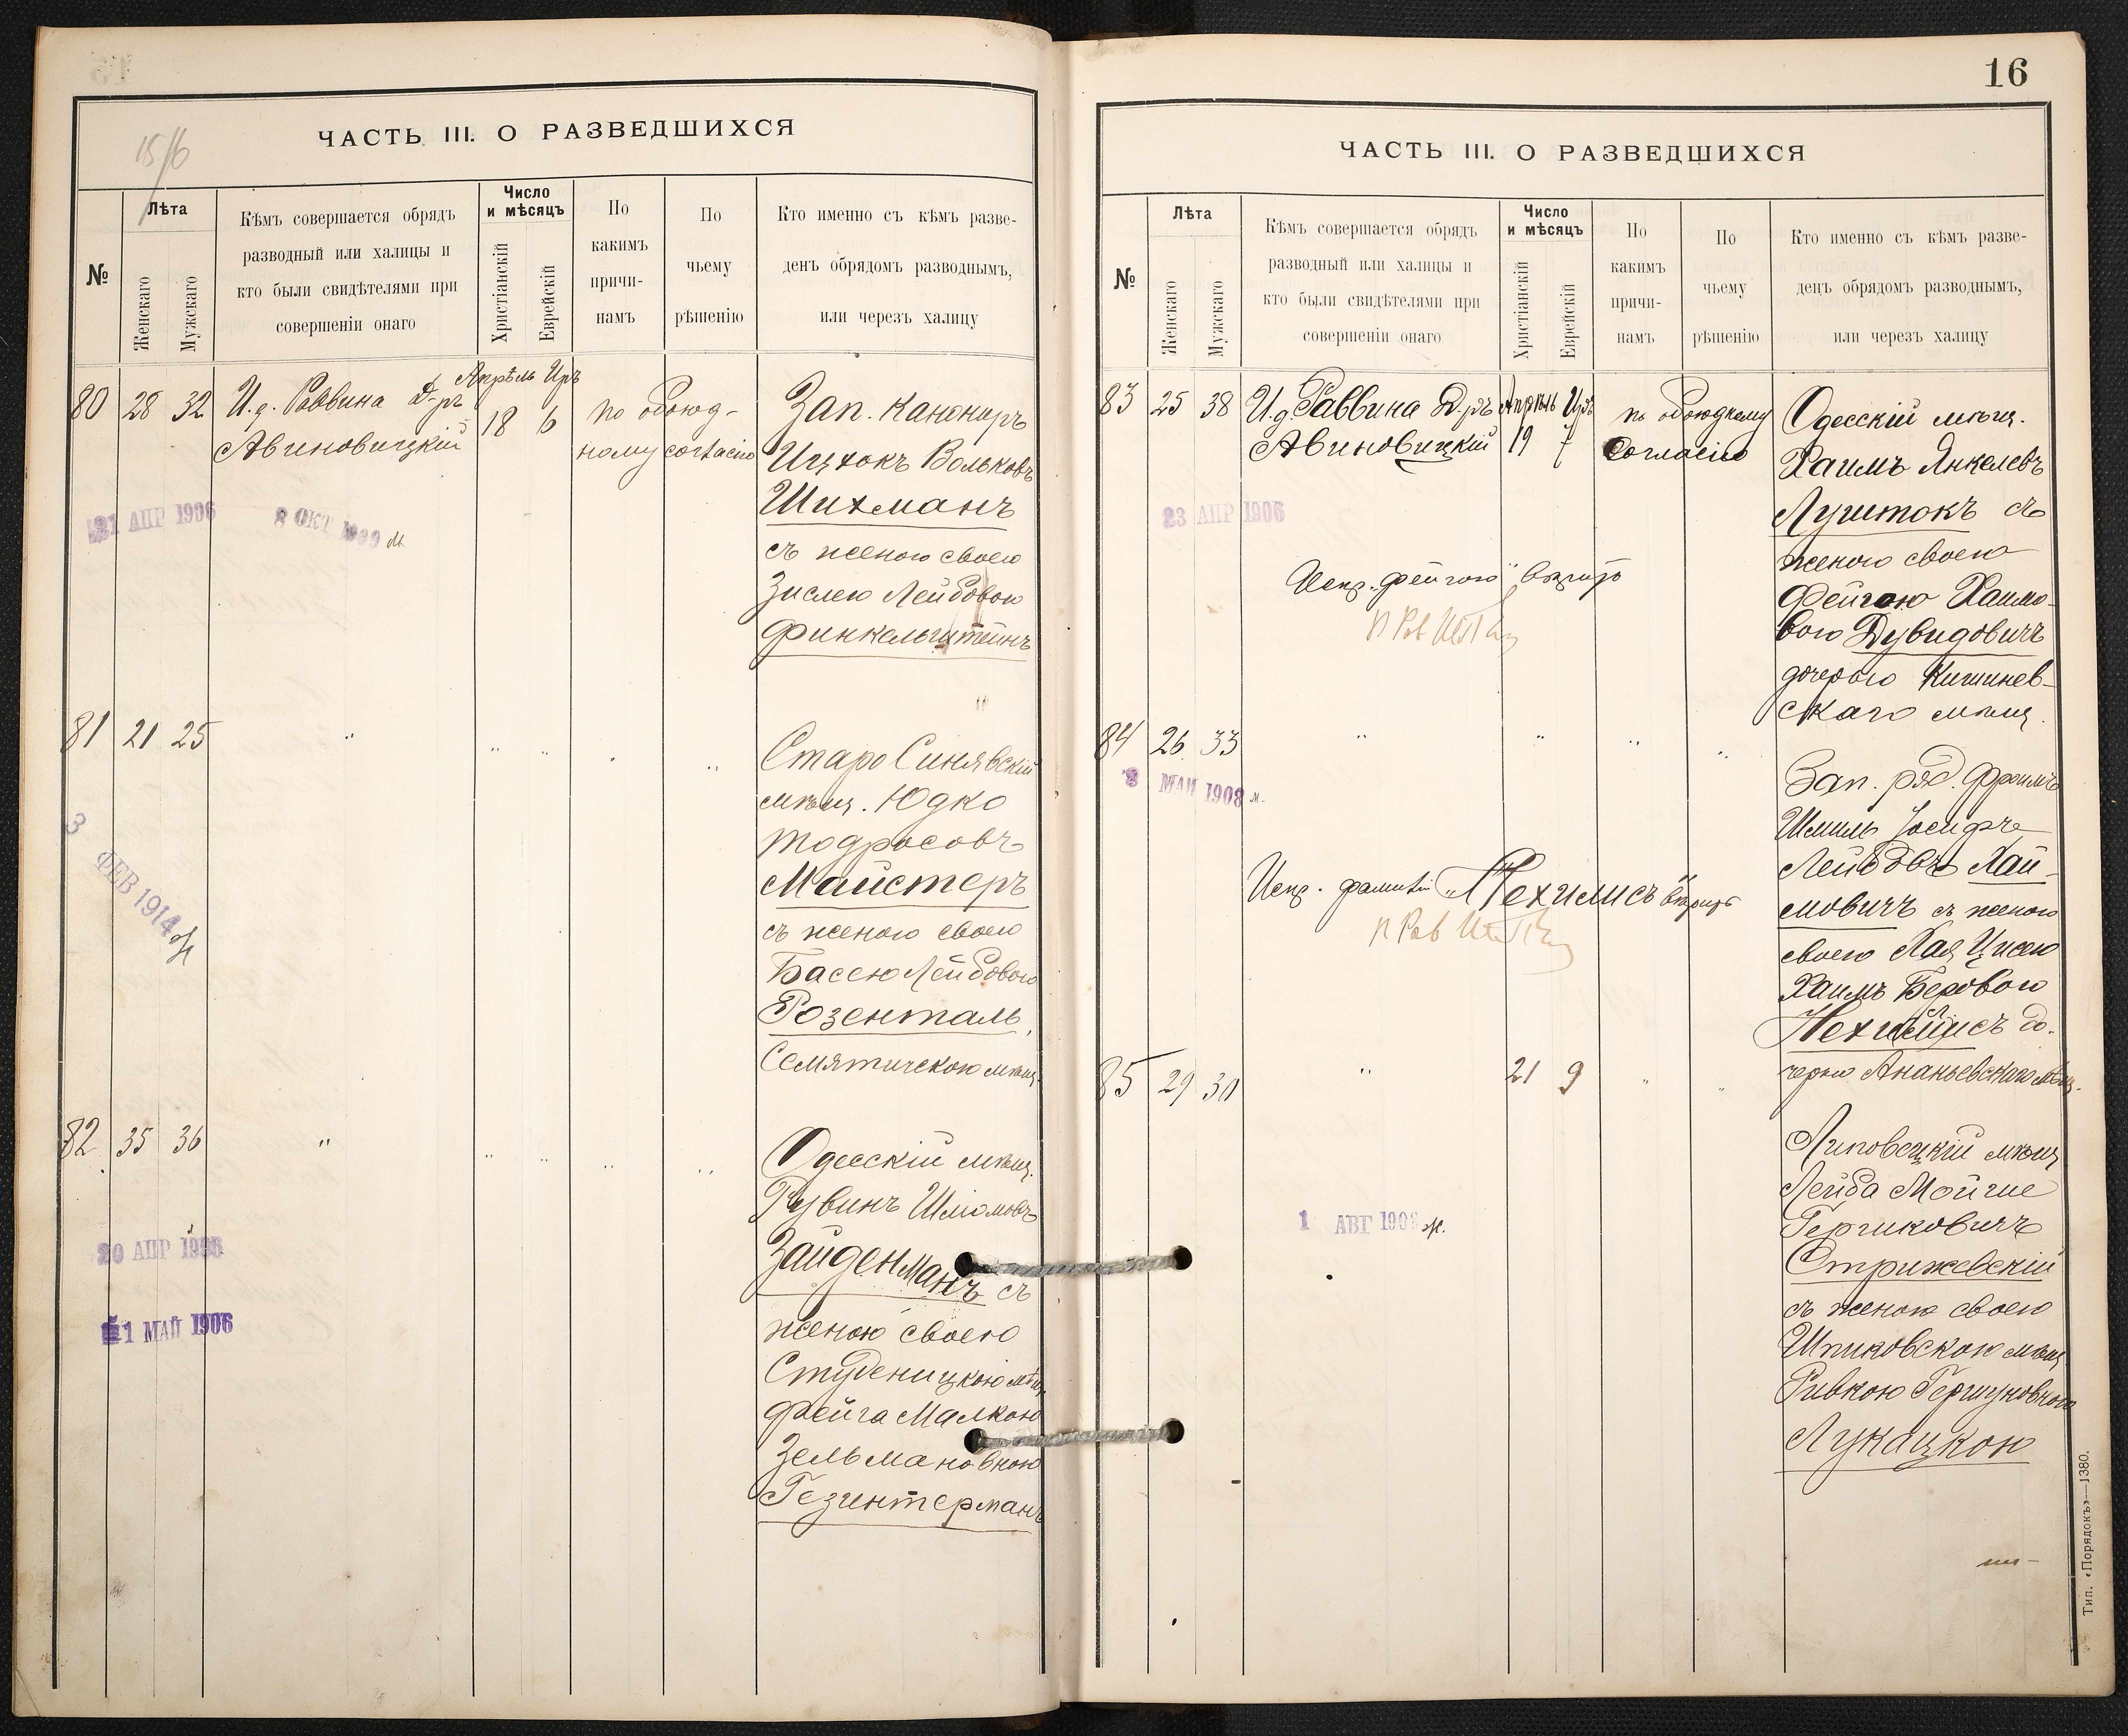 15/16
ЧАСТЬ III. О РАЗВЕДШИХСЯ
№
Лѣта
Женскаго
Мужскаго
Кѣмъ совершается обрядъ
разводный или халицы и
кто были свидѣтелями при
совершеніи онаго
Число
и мѣсяцъ
Христіанскій
Еврейскій
По
какимъ
причи-
намъ
По
чьему
рѣшенію
Кто именно съ кѣмъ разве-
денъ обрядомъ разводнымъ,
или черезъ халицу
80 28 32 И. д. Раввина Д-ръ Апрѣль Иръ
Авиновицкій 18 6
по обоюд-
ному согласію
Зап. канониръ
Ицхокъ Вольковъ
Шихманъ
съ женою своею
Зислею Лейбовою
Финкельштейнъ
21 АПР 1906
8 ОКТ
81 21 25 " " " " "
СтароСинявскій
мѣщ. Юдко
Тодросовъ
Майстеръ
съ женою своею
Басею Лейбовою
Розенталь,
Семятическою мѣщ.
3 ФЕВ 1914
82 35 36 " " " " "
Одесскій мѣщ.
Рувинъ Шліомовъ
Зайденманъ съ
женою своею
Студеницкою мѣщ.
Фейга Малкою
Зельмановною
Гезинтерманъ
20 АПР 1906
1 МАЙ 1906
16
ЧАСТЬ III. О РАЗВЕДШИХСЯ
№
Лѣта
Женскаго
Мужскаго
Кѣмъ совершается обрядъ
разводный или халицы и
кто были свидѣтелями при
совершеніи онаго
Число
и мѣсяцъ
Христіанскій
Еврейскій
По
какимъ
причи-
намъ
По
чьему
рѣшенію
Кто именно съ кѣмъ разве-
децъ обрядомъ разводнымъ,
или черезъ халицу
83 25 38 И. д. Раввина Д-ръ Апрѣль Иръ
Авиновицкій 19 7
по обоюдному
согласію
Одесскій мѣщ.
Хаимъ Янкелевъ
Луштокъ съ
женою своею
Фейгою Хаимо-
вою Дувидовичъ
дочерью Кишинев-
скаго мѣщ.
23 АПР 1906
Испр. „Фейгою" вѣрить
84 26 33 " " " "
Зап. ряд. Фроимъ
Шмиль Іосифъ
Лейбовъ Хай-
мовичъ съ женою
своею Хая Цисею
Хаимъ Беровою
Нехимисъ до-
черью Ананьевскаго мѣщ.
8 МАЙ 1908
Испр. фамилія „Нехилисъ" вѣрить
85 29 30 " 21 9 " "
Липовецкій мѣщ
Лейба Мойше
Гершковичъ
Стрижевскій
съ женою своею
Шпиковскою мѣщ
Ривкою Гершуновною
Лукацкою
1 АВГ 1908
Тип. «Порядокъ»—1380.